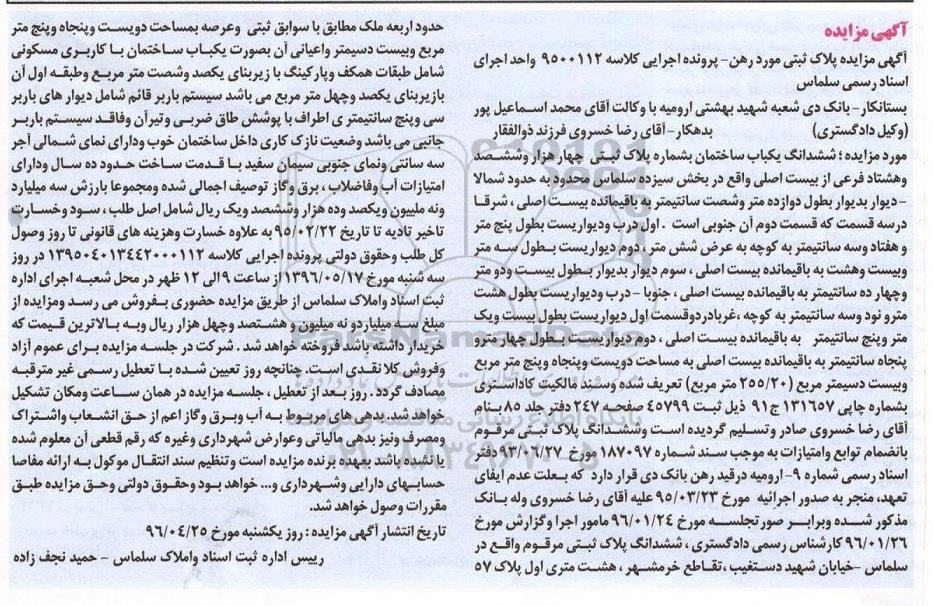 آگهی مزایده
آگهی مزایده پلاک ثبتی مورد رهن- پرونده اجرایی کلاسه ۹۵۰۰۱۱۲ واحد اجرای
اسناد رسمی سلماس
بستانکار- بانک دی شعبه شهید بهشتی ارومیه با وکالت آقای محمد اسماعیل پور
(وکیل دادگستری) بدهکار- آقای رضا خسروی فرزند ذوالفقار
مورد مزایده : ششدانگ یکباب ساختمان بشماره پلاک ثبتی چهار هزار وششصد
وهشتاد فرعی از بیست اصلی واقع در بخش سیزده سلماس محدود به حدود شمالا
- دیوار بدیوار بطول دوازده متر وشصت سانتیمتر به باقیمانده بیست اصلی ، شرقا
درسه قسمت که قسمت دوم آن جنوبی است . اول درب ودیواریست بطول پنج متر
و هفتاد وسه سانتیمتر به کوچه به عرض شش متر ، دوم دیواریست بطول سه متر
وبیست وهشت به باقیمانده بیست اصلی ، سوم دیوار بدیوار بطول بیست ودو متر
وچهار ده سانتیمتر به باقیمانده بیست اصلی ، جنوبا - درب ودیواریست بطول هشت
مترو نود وسه سانتیمتر به کوچه ،غربادردوقسمت اول دیواریست بطول بیست ویک
متر وپنج سانتیمتر به باقیمانده بیست اصلی ، دوم دیواریست بطول چهار مترو
پنجاه سانتیمتر به باقیمانده بیست اصلی به مساحت دویست وپنجاه وپنج متر مربع
وبیست دسیمتر مربع (۲۵۵/۲۰ متر مربع) تعریف شده وسند مالکیت کاداستری
بشماره چاپی ۱۳۱۶۵۷ ج۹۱ ذیل ثبت ۴۵۷۹۹ صفحه ۲۴۷ دفتر جلد ۸۵ بنام
آقای رضا خسروی صادر وتسلیم گردیده است وششدانگ پلاک ثبتی مرقوم
بانضمام توابع وامتیازات به موجب سند شماره ۱۸۷۰۹۷ مورخ ۹۳/۰۶/۲۷ دفتر
اسناد رسمی شماره ۹- ارومیه درقید رهن بانک دی قرار دارد که بعلت عدم ایفای
تعهد، منجر به صدور اجرائیه مورخ ۹۵/۰۳/۲۳ علیه آقای رضا خسروی وله بانک
مذکور شده وبرابر صورتجلسه مورخ ۹۶/۰۱/۲۴ مامور اجرا وگزارش مورخ
۹۶/۰۱/۲۶ کارشناس رسمی دادگستری ، ششدانگ پلاک ثبتی مرقوم واقع در
سلماس -خیابان شهید دستغیب ،تقاطع خرمشهر ، هشت متری اول پلاک ۵۷
حدود اربعه ملک مطابق با سوابق ثبتی وعرصه بمساحت دویست وپنجاه وپنج متر
مربع وبیست دسیمتر واعیانی آن بصورت یکباب ساختمان با کاربری مسکونی
شامل طبقات همکف وپارکینگ با زیربنای یکصد وشصت متر مربع وطبقه اول آن
بازیربنای یکصد وچهل متر مربع می باشد سیستم باربر قائم شامل دیوار های باربر
سی وپنج سانتیمتری اطراف با پوشش طاق ضربی وتیرآن وفاقد سیستم باربر
جانبی می باشد وضعیت نازک کاری داخل ساختمان خوب ودارای نمای شمالی آجر
سه سانتی ونمای جنوبی سیمان سفید با قدمت ساخت حدود ده سال ودارای
امتیازات آب وفاضلاب ، برق وگاز توصیف اجمالی شده ومجموعا بارزش سه میلیارد
ونه ملییون ویکصد وده هزار وششصد ویک ریال شامل اصل طلب ، سود وخسارت
تاخیر تادیه تا تاریخ ۹۵/۰۲/۲۲ به علاوه خسارت وهزینه های قانونی تا روز وصول
کل طلب وحقوق دولتی پرونده اجرایی کلاسه ۱۳۹۵۰۴۰۱۳۴۴۲۰۰۰۱۱۲ در روز
سه شنبه مورخ ۱۳۹۶/۰۵/۱۷ از ساعت ۹ الی ۱۲ ظهر در محل شعبه اجرای اداره
ثبت اسناد واملاک سلماس از طریق مزایده حضوری بفروش می رسد ومزایده از
مبلغ سه میلیاردو نه میلیون و هشتصد وچهل هزار ریال وبه بالاترین قیمت که
خریدار داشته باشد فروخته خواهد شد . شرکت در جلسه مزایده برای عموم آزاد
وفروش کلا نقدی است. چنانچه روز تعیین شده با تعطیل رسمی غیر مترقبه
مصادف گردد . روز بعد از تعطیل ، جلسه مزایده در همان ساعت ومکان تشکیل
خواهد شد. بدهی های مربوط به آب وبرق وگاز اعم از حق انشعاب واشتراک
ومصرف ونیز بدهی مالیاتی وعوارض شهرداری وغیره که رقم قطعی آن معلوم شده
یا نشده باشد بعهده برنده مزایده است وتنظیم سند انتقال موکول به ارائه مفاصا
حسابهای دارایی وشهرداری و... خواهد بود وحقوق دولتی وحق مزایده طبق
مقررات وصول خواهد شد.
تاریخ انتشار آگهی مزایده : روز یکشنبه مورخ ۹۶/۰۴/۲۵
رییس اداره ثبت اسناد واملاک سلماس - حمید نجف زاده